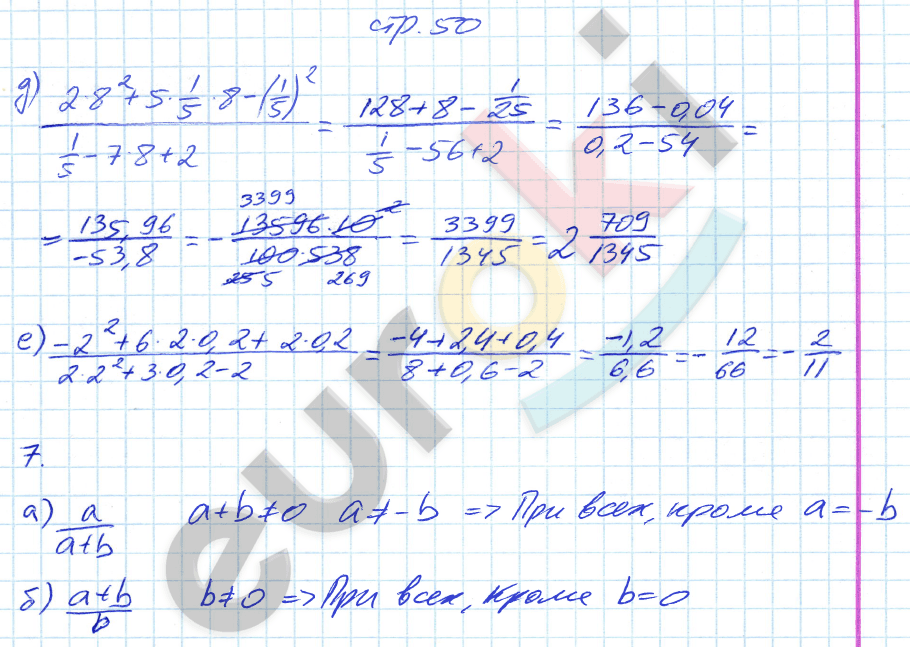 стр. 50
д) (2·8² + 5·1/5·8 − (1/5)²)/(1/5 − 7·8 + 2) = (128 + 8 − 1/25)/(1/5 − 56 + 2) = (136 − 0,04)/(0,2 − 54) =
= 135,96/−53,8 = − 3399 13596·10 2/100·538 25 5 269 = 3399/1345 = 2 709/1345
е) (−2² + 6·2·0,2 + 2·0,2)/(2·2² + 3·0,2 − 2) = (−4 + 2,4 + 0,4)/(8 + 0,6 − 2) = −1,2/6,6 = − 12/66 = − 2/11
7.
а) a/(a+b) a+b≠0 a≠−b => При всех, кроме a = −b
б) (a+b)/b b≠0 => При всех, кроме b=0
euroki